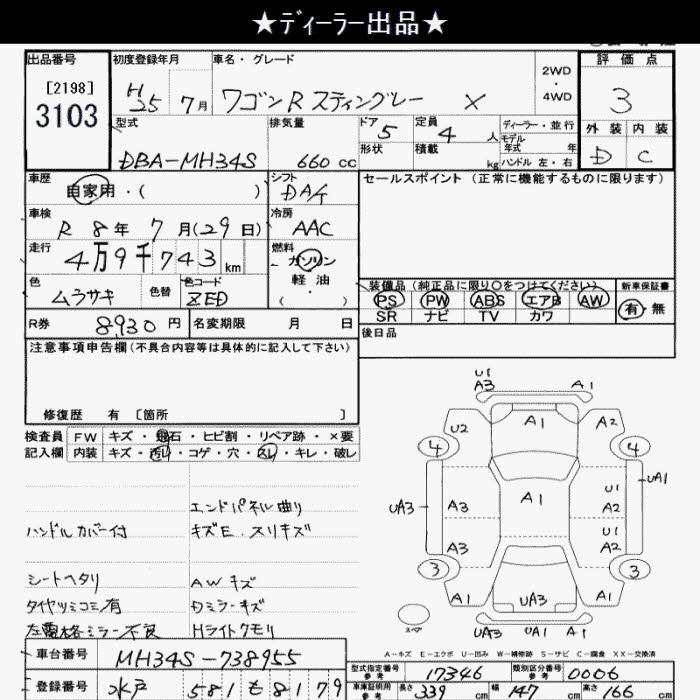 ★ディーラー出品★
出品番号 初度登録年月 車名・グレード 2WD・4WD 評価点
[2198]
3103
H25 7月 ワゴンR スティングレー X 3
型式 排気量 ドア 5 定員 4人 ディーラー・並行 外装 内装
モデル年式 年
DBA-MH34S 660cc 形状 積載 kg ハンドル 左・右 D C
車歴 自家用・( ) シフト DAT セールスポイント (正常に機能するものに限ります)
車検 R 8年 7月(29日) 冷房 AAC
走行 4万9千743km 燃料 ガソリン
軽油
( )
色 ムラサキ 色替 色コード ZED
装備品(純正品に限り○をつけてください) 新車保証書
PS PW ABS エアB AW 有・無
SR ナビ TV カワ
R券 8930円 名変期限 月 日 後日品
注意事項申告欄(不具合内容等は具体的に記入して下さい)
修復歴 有 [箇所 ]
検査員 FW キズ・飛石・ヒビ割・リペア跡・×要
記入欄 内装 キズ・汚れ・コゲ・穴・スレ・キレ・破レ
エンドパネル曲り
ハンドルカバー付 キズE.スリキズ
シートヘタリ AWキズ
タイヤツミコミ有 Dミラーキズ
左電格ミラー不良 Hライトクモリ
U1
A3 A1
U2 A1 A2
4 4
UA3 A3 A1 U1 A2 UA1
A3 U1 A2
3 3
A1 UA3 A1
スペア UA3 UA1 A1
A-キズ E-エクボ U-凹み W-補修跡 S-サビ C-腐食 XX-交換済
車台番号 MH34S-738955
型式指定番号 参考 17346 類別区分番号 参考 0006
登録番号 水戸 581 も 8179
車庫証明用 参考 長さ 339cm 幅 147cm 高さ 166cm